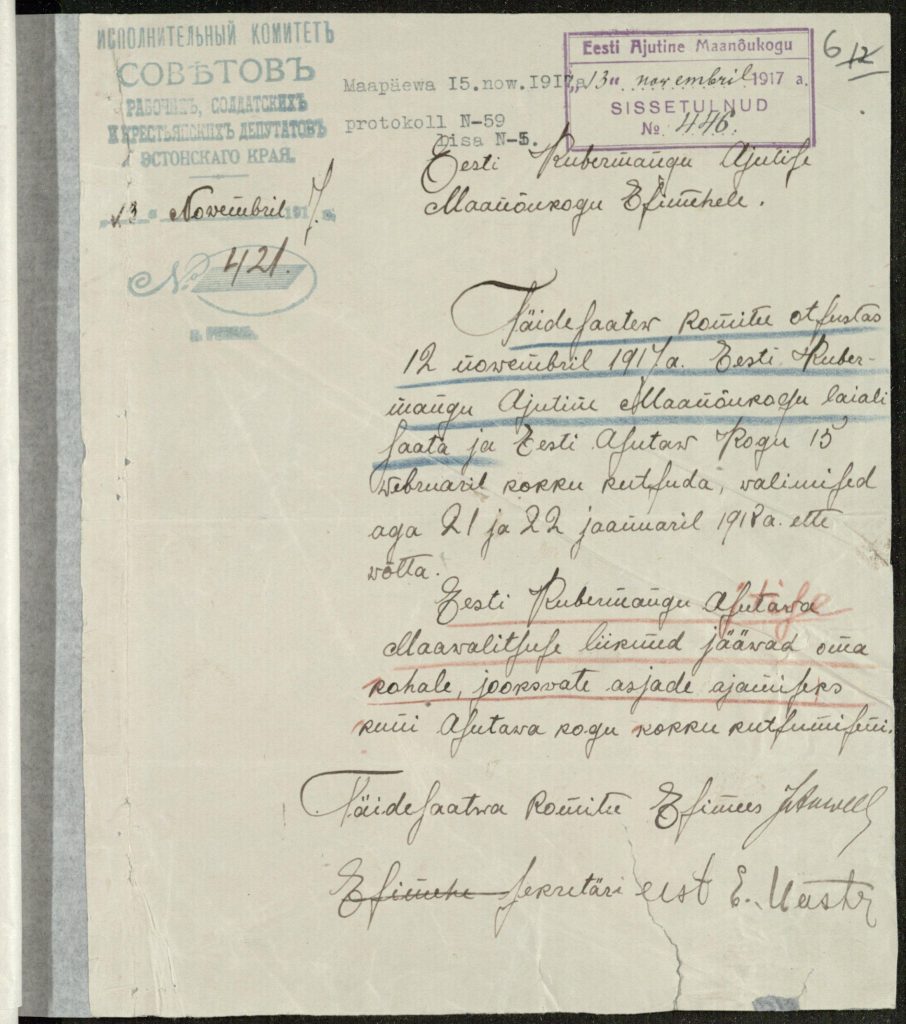 ИСПОЛНИТЕЛЬНЫЙ КОМИТЕТЪ
СОВѢТОВЪ
РАБОЧИХЪ, СОЛДАТСКИХЪ
И КРЕСТЬЯНСКИХЪ ДЕПУТАТОВЪ
ЭСТОНСКАГО КРАЯ.
13 Novembril 1917.
№ 421.
Maapäewa 15.now.1917a
protokoll N-59
Lisa N-5.
Eesti Ajutine Maanõukogu
"13" novembril 1917 a.
SISSETULNUD
№ 446.
6 12
Eesti Kubermangu Ajutise
Maanõukogu Esimehele.
Täidesaatew komitee otsustas
12 nowembril 1917 a. Eesti Kuber-
mangu Ajutine Maanõukogu laiali
saata ja Eesti Asutaw Kogu 15
webruaril kokku kutsuda, walimised
aga 21 ja 22 jaanuaril 1918 a. ette
wõtta.
Eesti Kubermangu Asutawa
Maawalitsuse liikmed jääwad oma
kohale, jooksvate asjade ajamiseks
kuni Asutawa kogu kokku kutsumiseni.
Täidesaatwa Komitee Esimees J. Anwelt
Esimehe sekretäri eest E.